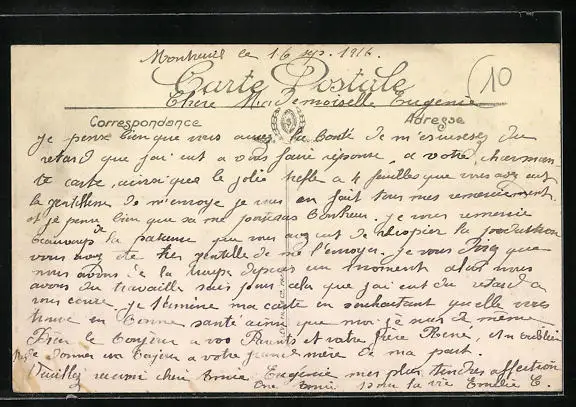 Montreuil le 16 sep. 1916.
10
Carte Postale
Chère Mademoiselle Eugénie
Correspondance
Adresse
Je pense bien que vous aurez la bonté de m'escusez du
retard que j'ai eut a vous faire réponse, a votre charman
te carte, ainsi que le jolie trefle a 4 feuilles que vous avez eut
la gentillesse de m'envoye je vous en fait tous mes remerciement
et je pense bien que sa me porteras bonheur. Je vous remercie
beaucoups de la patience que vous avez eut de
vous avez été très gentille de me l'envoyer. Je vous direz que
nous avons de la troupe depuis un moment alors nous
avons du travaille sais pour cela que j'ai eut du retard a
vous écrire. Je termine ma carte en souhaitant quelle vous
trouve en bonne santé ainsi que moi je suis de même
Bien le bonjour a vos Parents et votre frère René, et n'oublier
pas de donner un bonjour a votre grand mère de ma part.
Veuillez recevoir chère Amie Eugénie mes plus tendres affection
Une Amie pour la vie Emilie C.